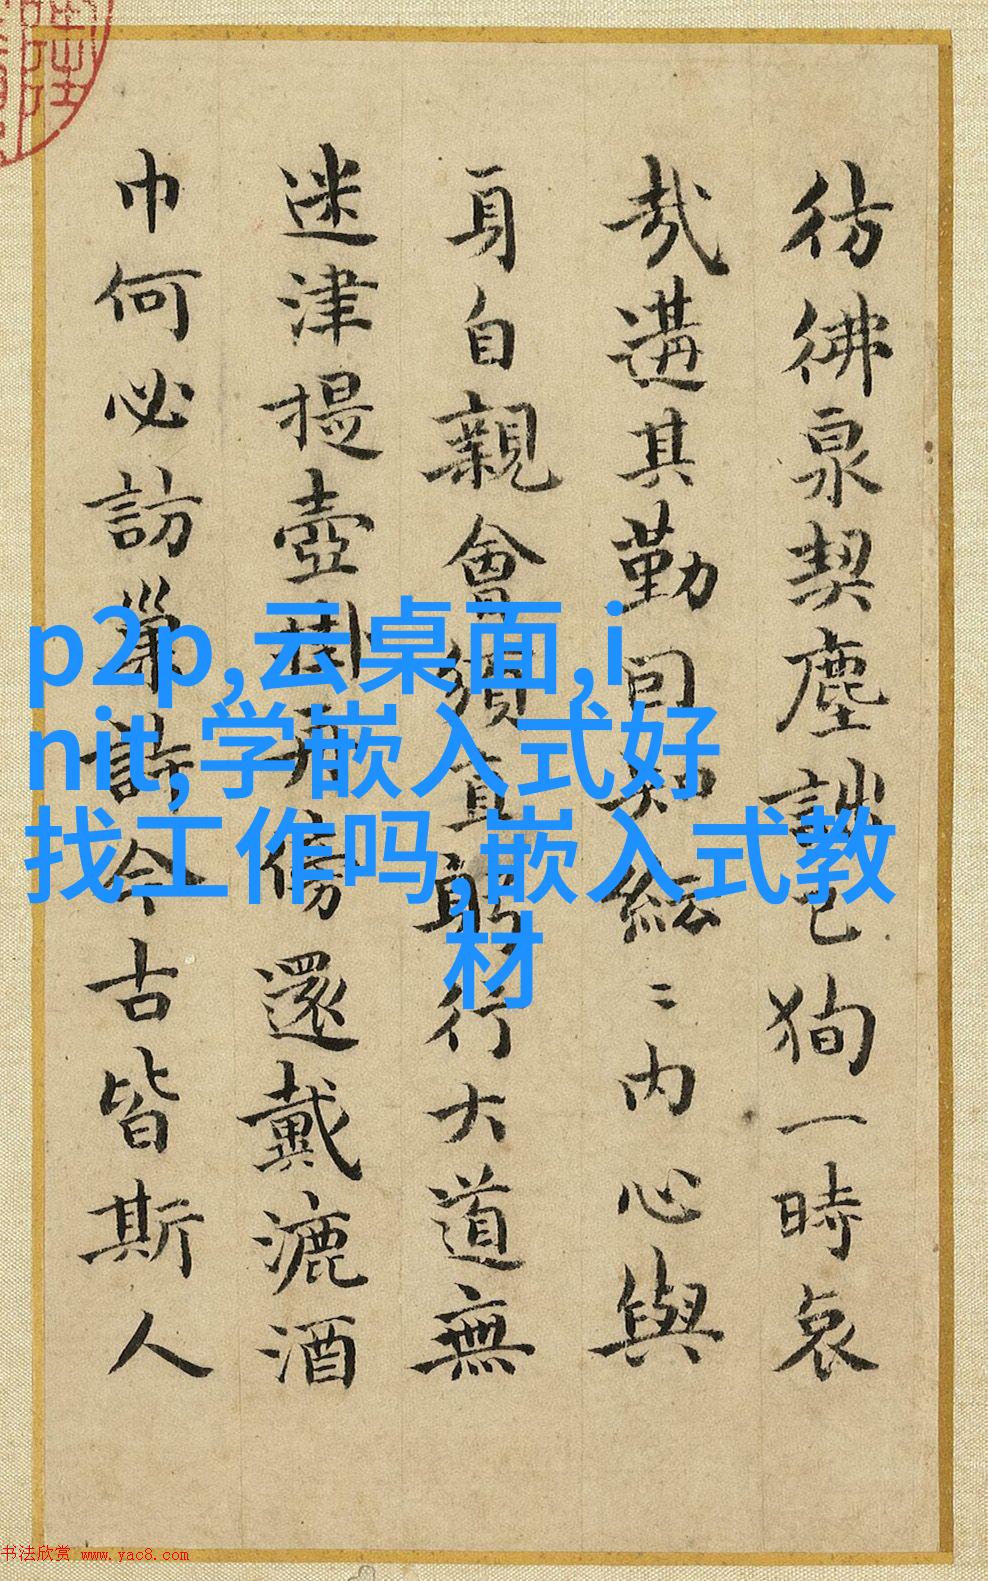 彷彿泉契塵已狥一時哀
哉遘其勤紜〻内心與
耳自親會須直躬行大道無
迷津提壺傍還戴漉酒
巾何必訪巢許今古皆斯人
p2p,云桌面,i
nit,学嵌入式好
找工作吗,嵌入式教
材
书法欣赏 www.yac8.com